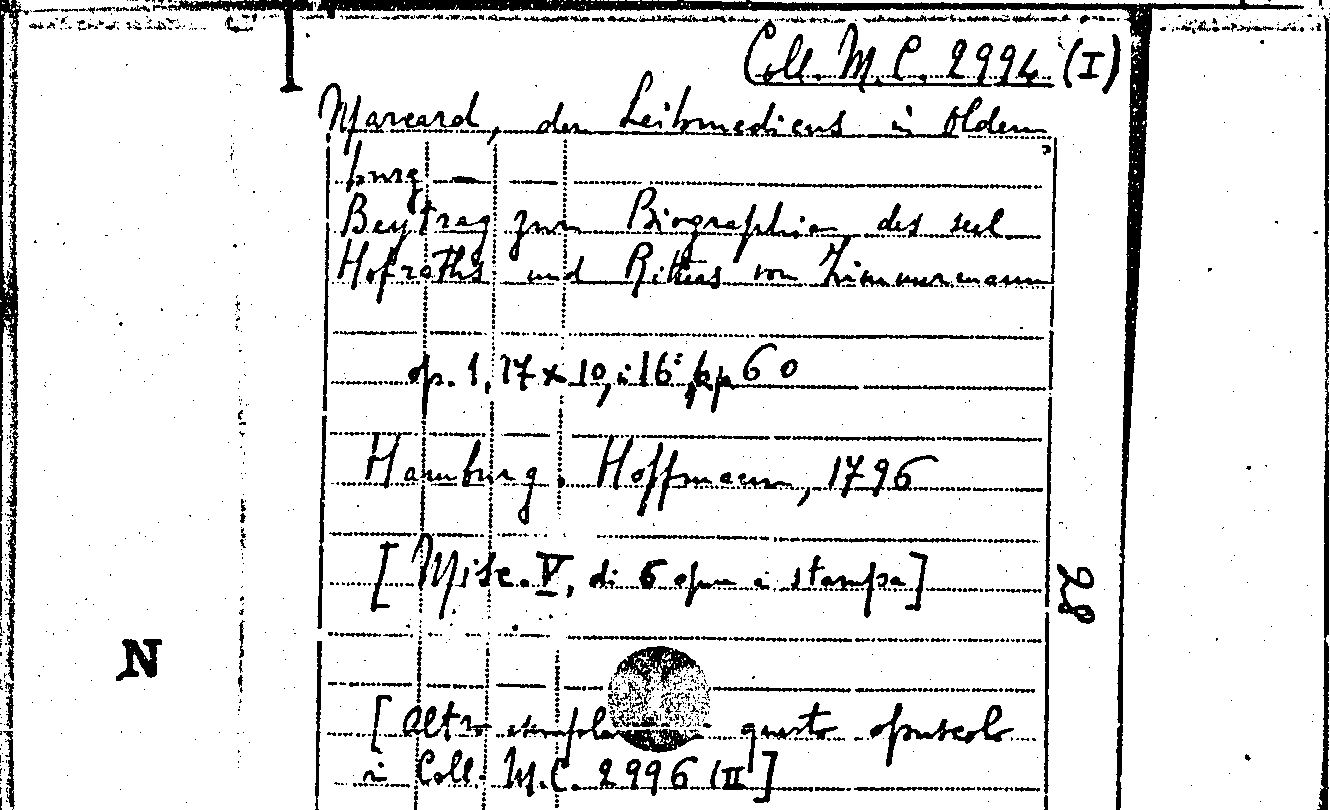 Coll. M.C. 2994 (I)
Marcard, der Leibmedicus in Olden
burg –
Beytrag zur Biographie des seel.
Hofraths und Ritters von Zimmermann
op. 1, 17 x 10, i 16°, pp 60
Hamburg. Hoffmann, 1796
[Misc. V, di 6 opm a stampa]
28
N
[altro questo opuscolo
in Coll. M.C. 2996 (II]